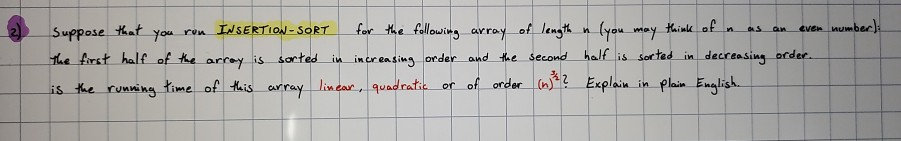 2) Suppose that you run INSERTION-SORT for the following array of length n (you may think of n as an even number):
The first half of the array is sorted in increasing order and the second half is sorted in decreasing order.
is the running time of this array linear, quadratic or of order (n)^3/2? Explain in plain English.